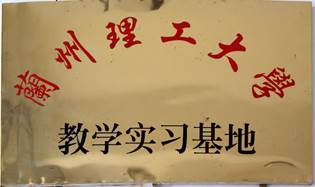 蘭州理工大學
教学实习基地